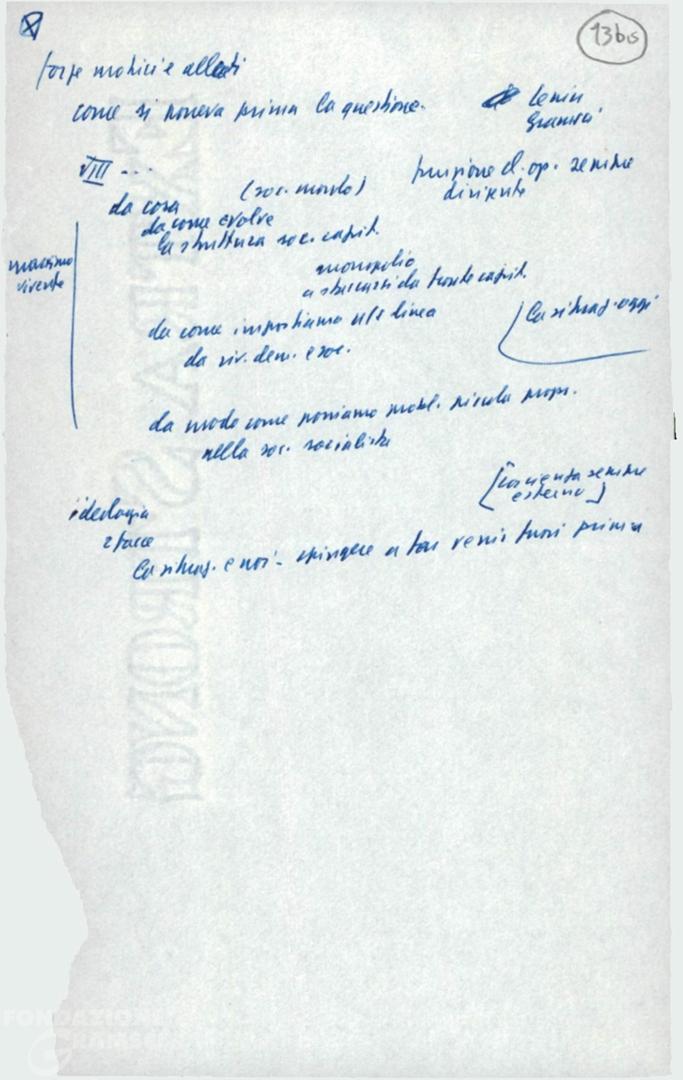 13bis
forze motrici e alleati
come si poneva prima la questione.
Lenin
Gramsci
VIII ...
funzione cl. op. sempre
dirigente
(soc. mondo)
da cosa
da come evolve
la struttura soc. capit.
marxismo
vivente
monopolio
a sbocciarsi da fronte capit.
da come impostiamo ns linea
la situaz. oggi
da riv. dem. e soc.
da modo come poniamo probl. piccola propr.
nella soc. socialista
[coscienza sempre
esterna]
ideologia
2 facce
la situaz. e noi - spingere a far venir fuori prima
FONDAZIONE
GRAMSCI